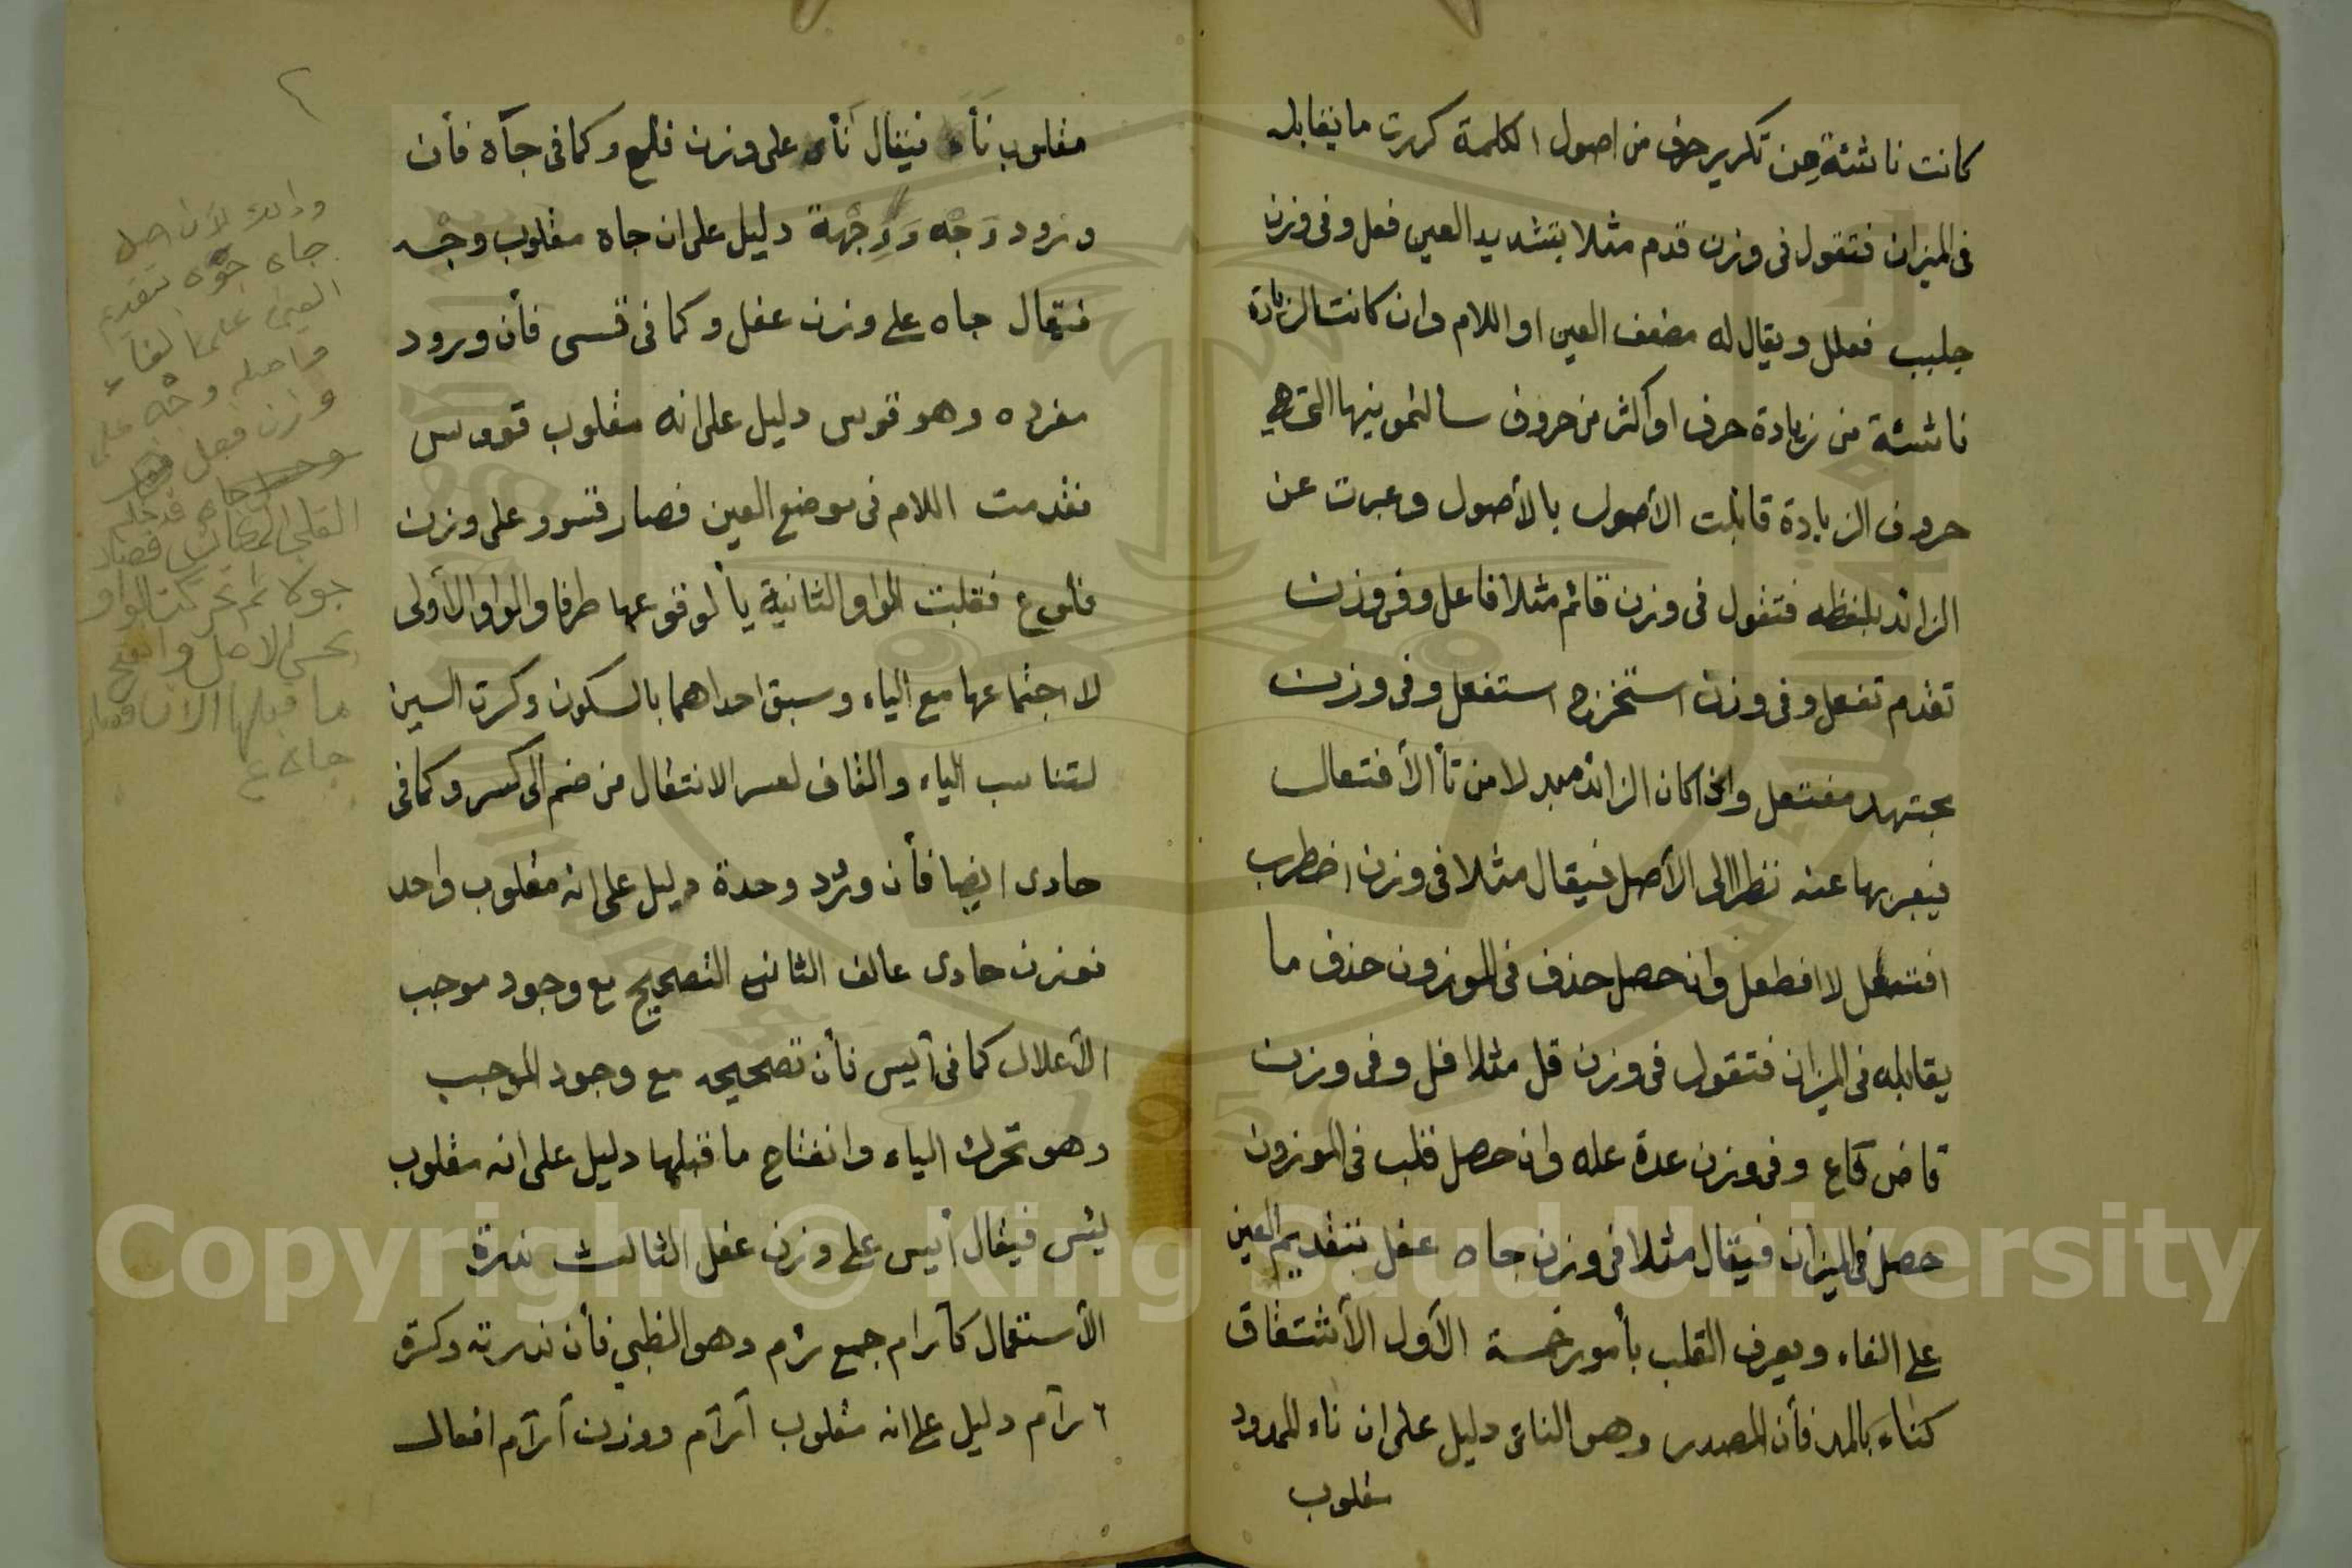 كانت ناشئة من تكرير حرف من اصول الكلمة كررت ما يقابله
فى الميزان فتقول فى وزن قدم مثلا بتشديد العين فعل وفى وزن
جلبب فعلل ويقال له مضعف العين او اللام وان كانت الزيادة
ناشئة من زيادة حرف او اكثر من حروف سألتمونيها التى هى
حروف الزيادة قابلت الأصول بالأصول وعبرت عن
الزائد بلفظه فتقول فى وزن قائم مثلا فاعل وفى وزن
تقدم تفعل وفى وزن استخرج استفعل وفى وزن
مجتهد مفتعل واذا كان الزائد مبدلا من تأ الأفتعال
فيعبر بها عنه نظرا الى الأصل فيقال مثلا فى وزن اضطرب
افتعل لا افطعل وان حصل حذف فى الموزون حذف ما
يقابله فى الميزان فتقول فى وزن قل مثلا فل وفى وزن
قاض فاع وفى وزن عدة عله وان حصل قلب فى الموزون
حصل فى الميزان فيقال مثلا فى وزن جاه عفل بتقديم العين
على الفاء ويعرف القلب بأمور خمسة الأول الأشتقاق
كناء بالمد فأن المصدر وهو النأى دليل على ان ناء الممدود
مقلوب
٢
مقلوب نأى فيقال ناء على وزن فلع وكما فى جاه فأن
ورود وجه ووجهة دليل على ان جاه مقلوب وجه
فيقال جاه على وزن عفل وكما فى قسى فأن ورود
مفرده وهو قوس دليل على انه مقلوب قووس
فقدمت اللام فى موضع العين فصار قسوو على وزن
فلوع فقلبت الواو الثانية يأ لوقوعها طرفا والواو الأولى
لاجتماعها مع الياء وسبق احداهما بالسكون وكسرت السين
لتناسب الياء والقاف لعسر الانتقال من ضم الى كسر وكما فى
حادى ايضا فأن ورود وحدة دليل على انه مقلوب واحد
فوزن حادى عالف الثانى التصحيح مع وجود موجب
الأعلال كما فى أيس فأن تصحيحه مع وجود الموجب
وهو تحرك الياء وانفتاح ما قبلها دليل على انه مقلوب
يئس فيقال أيس على وزن عفل الثالث ندرة
الأستعمال كآرام جمع رئم وهو الظبى فأن ندرته وكثرة
ارآم دليل على انه مقلوب أرآم ووزن أرآم افعال
وذالك لأن اصل
جاه تقديم
العين على الفاء
واصله وجه على
وزن فعل
القلب المكانى فصار
ثم تحركت الواو
بحسب الاصل وانفتح
ما قبلها الان فصار
جاه
Copyright © King Saud University
1957